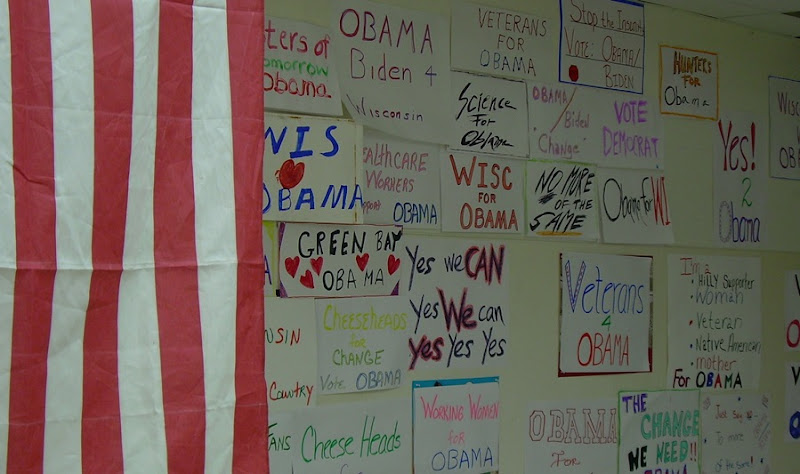 ters of
omorrow
Obama
OBAMA
Biden 4
Wisconsin
VETERANS
FOR
OBAMA
Stop the
Vote: OBAMA/
BIDEN
HUNTERS
FOR
Obama
Science
For
Obama
OBAMA/
Biden
Change
VOTE
DEMOCRAT
Yes!
2
Obama
WIS
OBAMA
EALTHCARE
WORKERS
OBAMA
WISC
FOR
OBAMA
NO MORE
OF THE
SAME
Obama FOR WI
GREEN BAY
OBAMA
Yes we CAN
Yes We can
yes Yes Yes
Veterans
4
OBAMA
I'm a
• Hilly Supporter
• Woman
• Veteran
• Native American
• mother
FOR OBAMA
CHEESEHEADS
for
CHANGE
Vote OBAMA
NSIN
COUNTRY
FANS
CHEESE HEADS
for
WORKING WOMEN
for
OBAMA
OBAMA
FOR
THE
CHANGE
WE NEED!!
OBAMA
Just Say
To more
of the